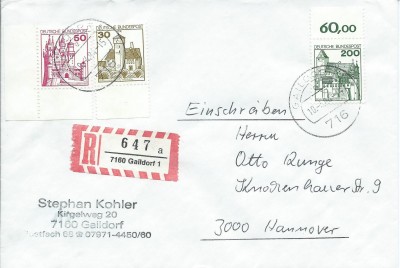 60,00
DEUTSCHE BUNDESPOST
50
DEUTSCHE BUNDESPOST
30
DEUTSCHE BUNDESPOST
200
716
Einschreiben
Herrn
Otto Runge
R
647 a
7160 Gaildorf 1
Stephan Kohler
Kirgelweg 20
7160 Gaildorf
07971-4450/60
3000 Hannover